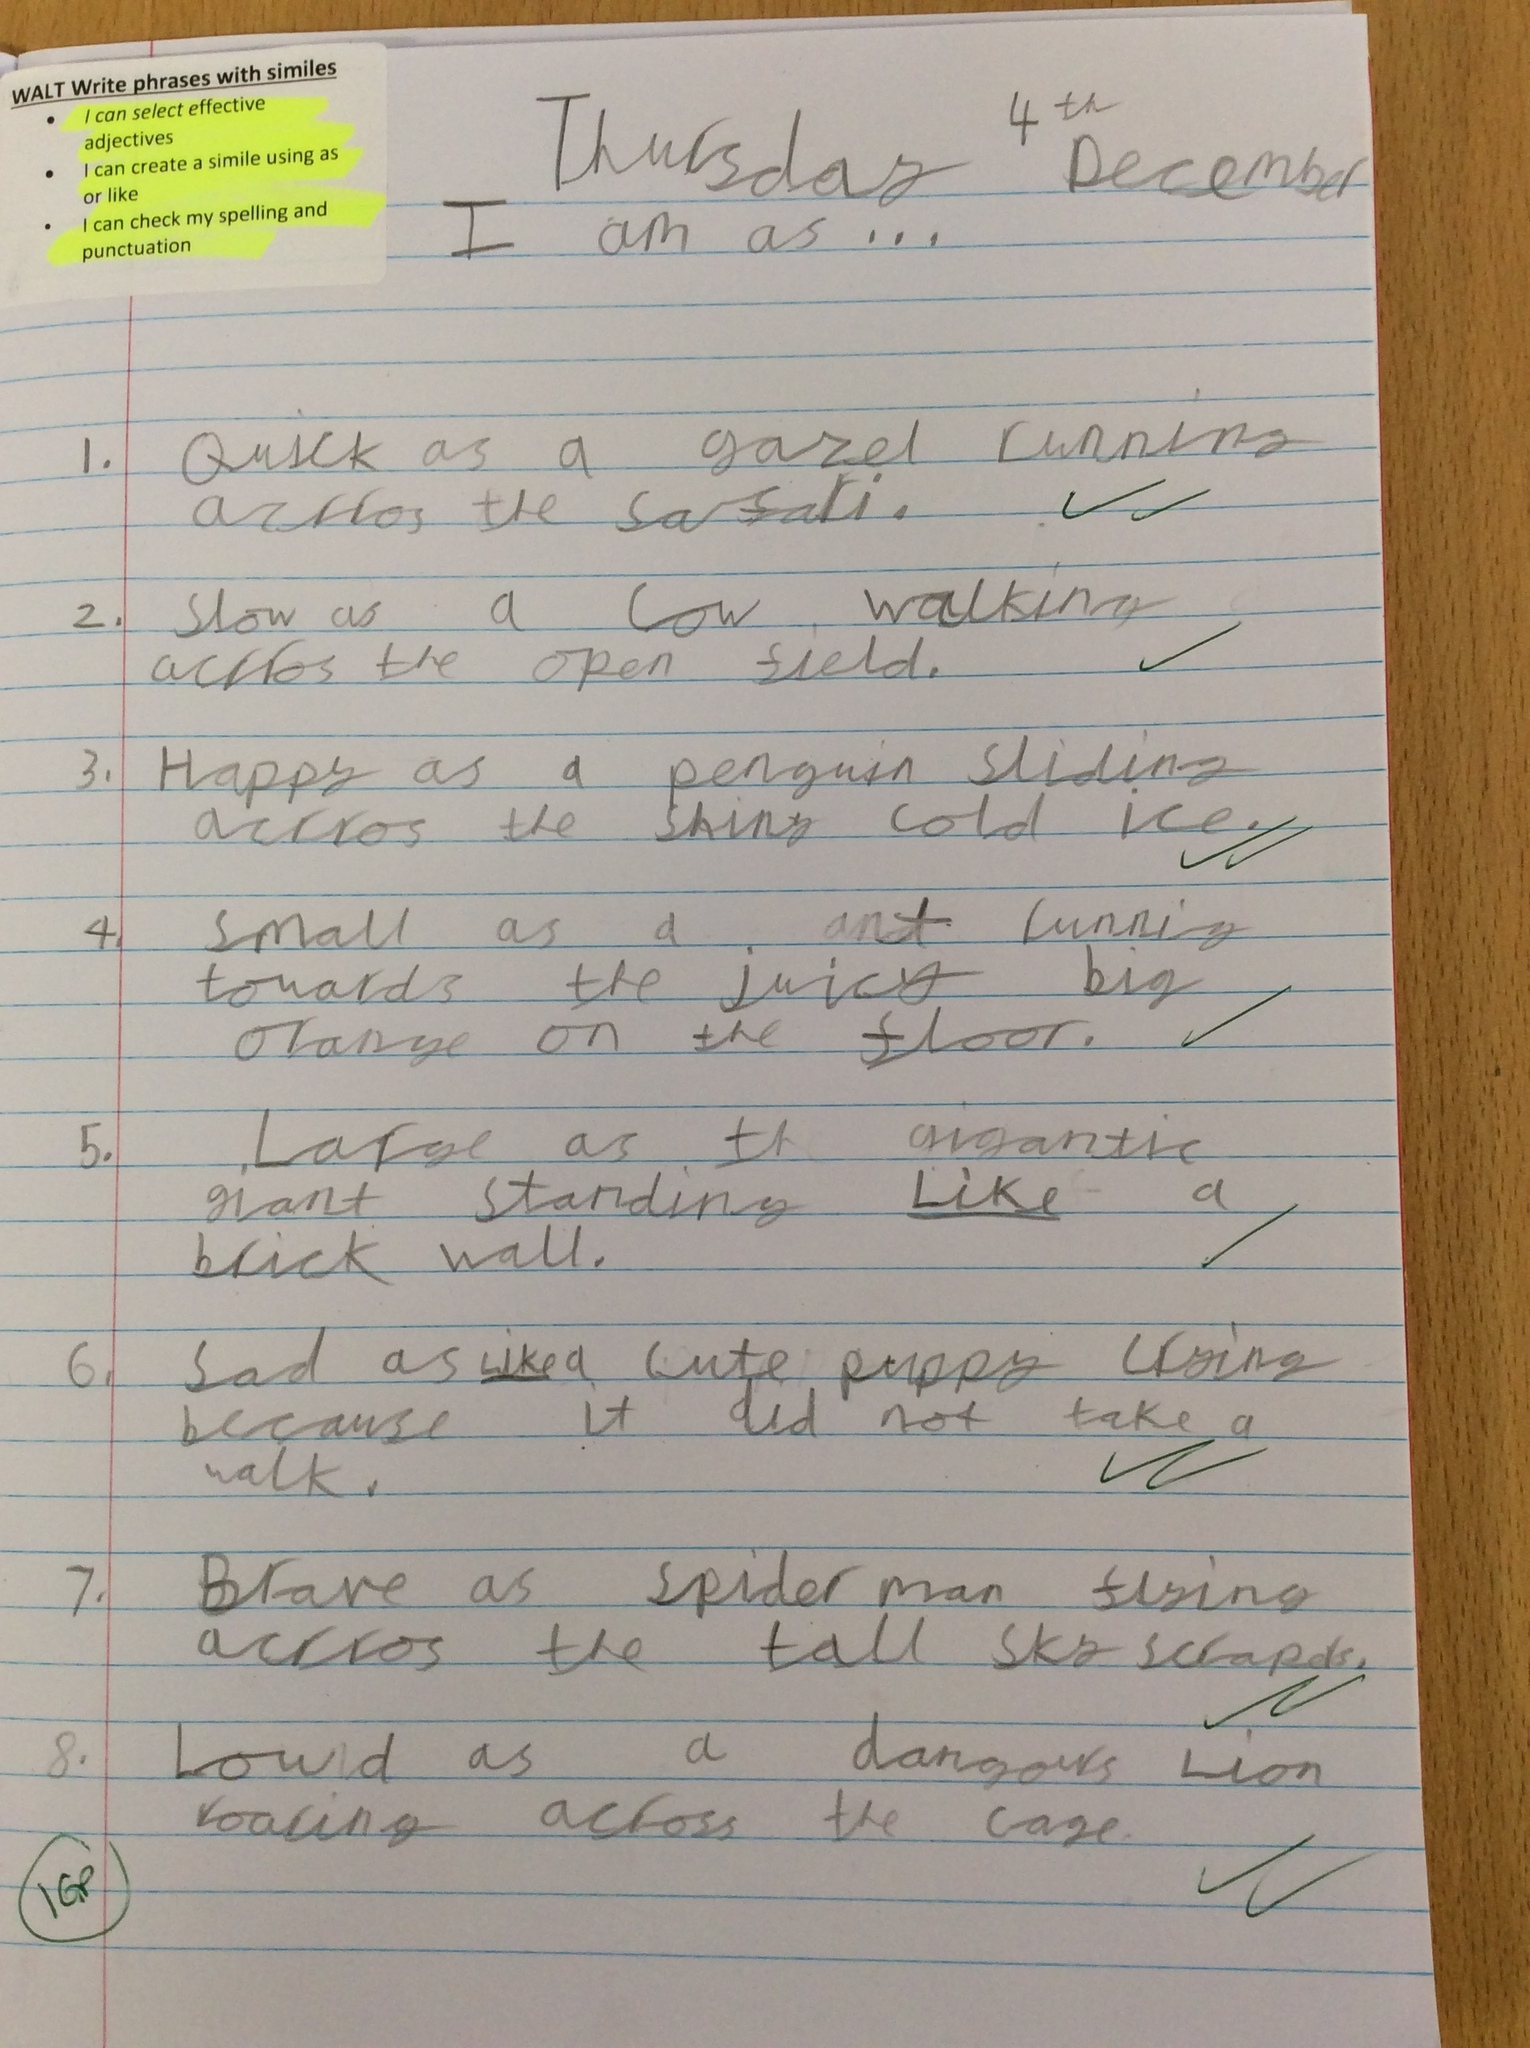 WALT Write phrases with similes
• I can select effective
adjectives
• I can create a simile using as
or like
• I can check my spelling and
punctuation
Thursday 4th December
I am as ...
1. Quick as a gazel running
acrros the safari.
2. Slow as a cow walking
acrros the open field.
3. Happy as a penguin sliding
acrros the shiny cold ice.
4. Small as a ant runnig
towards the juicy big
orange on the floor.
5. Large as th gigantic
giant standing Like a
brick wall.
6. Sad as Like a cute puppy crying
because it did not take a
walk.
7. Brave as spider man flying
acrros the tall sky scrapers.
8. Lowd as a dangours Lion
roaring across the cage.
1GP